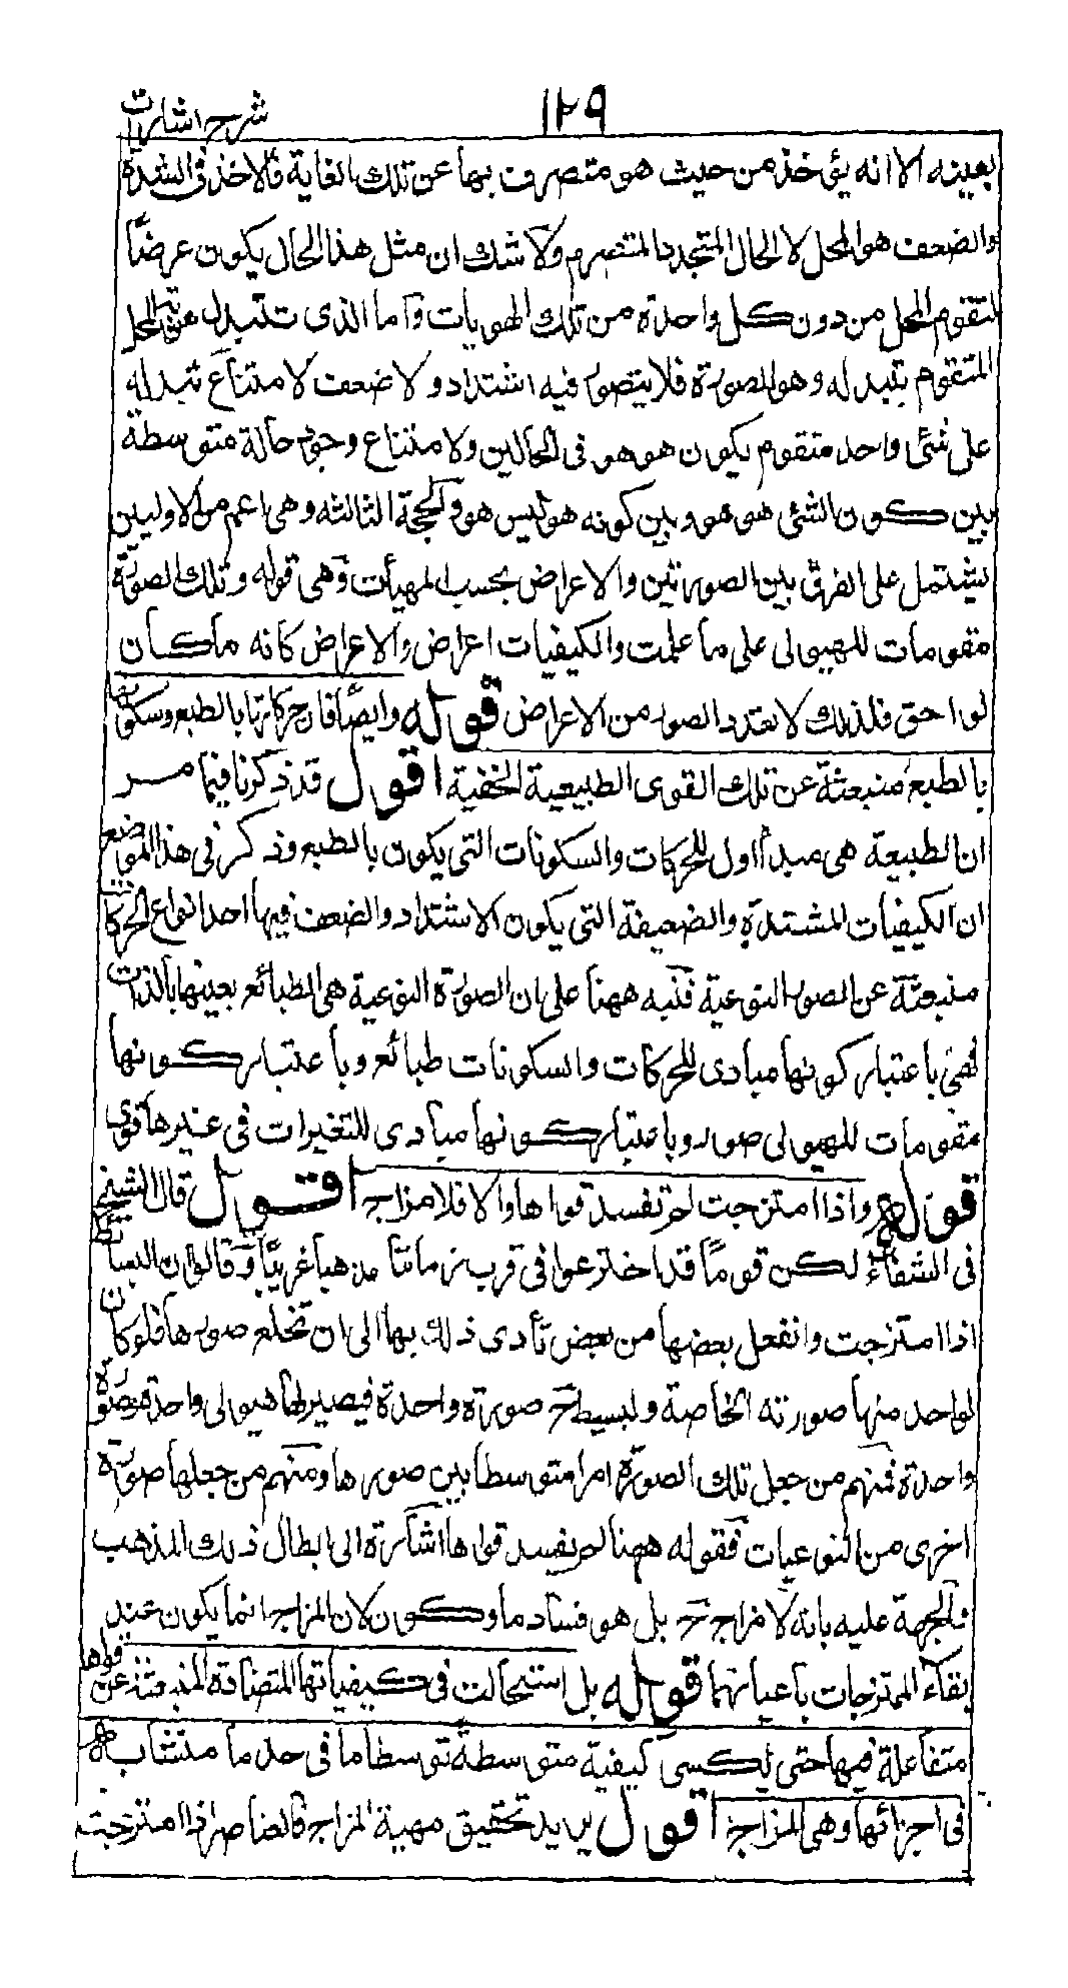 ١٢٩
شرح اشارات
بعينه الا انه يؤخذ من حيث هو متصرف بها عن تلك الغاية فالاخذ فى الشدة
والضعف هو المحل لا الحال المتجدد المتصرم ولا شك ان مثل هذا الحال يكون عرضًا
لتقوم المحل من دون كل واحدة من تلك الهويات واما الذى تتبدل هوية المحل
المتقوم بتبدله وهو الصورة فلا يتصور فيه اشتداد ولا ضعف لامتناع تبدله
على شئ واحد متقوم يكون هو هو فى الحالين ولامتناع وجود حالة متوسطة
بين كون الشئ هو هو وبين كونه هو ليس هو والحجة الثالثه وهى اعم من الاوليين
يشتمل على الفرق بين الصورتين والاعراض بحسب المهيات وهى قوله وتلك الصورة
مقومات للهيولى على ما علمت والكيفيات اعراض والاعراض كانه ما كان
لواحق فلذلك لا تعدد الصور من الاعراض قوله وايضًا فان حركاتها بالطبع وسكوناتها
بالطبع منبعثة عن تلك القوى الطبيعية الخفية اقول قد ذكرنا فيما مر
ان الطبيعة هى مبدأ اول للحركات والسكونات التى يكون بالطبع وذكر فى هذا الموضع
ان الكيفيات المشتدة والضعيفة التى يكون الاشتداد والضعف فيها احد انواع الحركات
منبعثة عن الصور النوعية فنبه ههنا على ان الصورة النوعية هى الطبائع بعينها بالذات
فهى باعتبار كونها مبادى للحركات والسكونات طبائع وباعتبار كونها
مقومات للهيولى صور وباعتبار كونها مبادى للتغيرات فى غيرها قوى
قوله واذا امتزجت لم تفسد قواها والا فلا مزاج اقول قال الشيخ
فى الشفاء لكن قومًا قد اخترعوا فى قرب زماننا مذهبا غريبًا وقالوا ان البسائط
اذا امتزجت وانفعل بعضها من بعض تأدى ذلك بها الى ان تخلع صورها فلو كان
لواحد منها صورته الخاصة وليبسط ح صورة واحدة فيصير لها هيولى واحدة وصورة
واحدة فمنهم من جعل تلك الصورة امرا متوسطا بين صورها ومنهم من جعلها صورة
اخرى من النوعيات فقوله ههنا لم يفسد قواها اشارة الى ابطال ذلك المذهب
والجهة عليه بانه لا مزاج ح بل هو فساد ما وكون لان المزاج انما يكون عند
بقاء الممتزجات باعيانها قوله بل استحالت فى كيفياتها المتضادة المنبعثة عن قواها
متفاعلة فيها حتى يكتسى كيفية متوسطة توسطا ما فى حد ما متشابه
فى اجزائها وهى المزاج اقول يريد تحقيق مهية المزاج فالعناصر اذا امتزجت